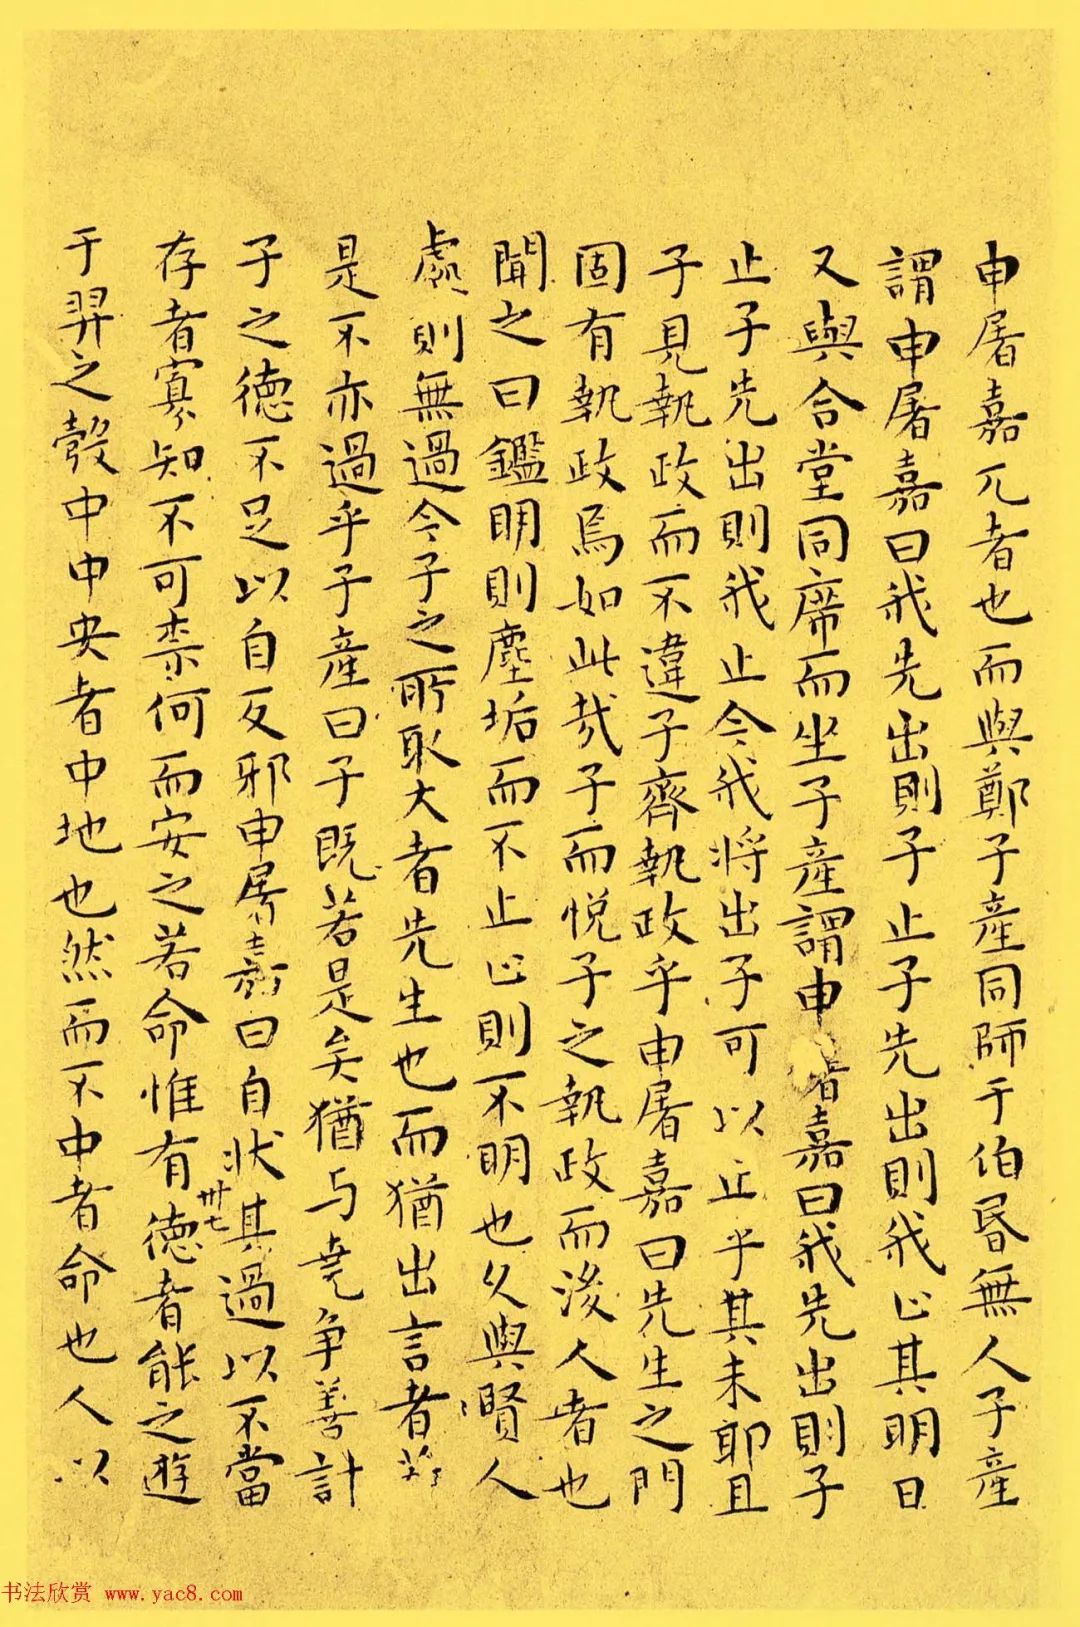 申屠嘉兀者也而與鄭子產同師于伯昏無人子產
謂申屠嘉曰我先出則子止子先出則我止其明日
又與合堂同席而坐子產謂申者嘉曰我先出則子
止子先出則我止今我將出子可以止乎其未耶且
子見執政而不違子齊執政乎申屠嘉曰先生之門
固有執政焉如此哉子而悅子之執政而後人者也
聞之曰鑑明則塵垢而不止止則不明也久與賢人
處則無過今子之所取大者先生也而猶出言者若
是不亦過乎子產曰子既若是矣猶与堯争善計
子之德不足以自反邪申屠嘉曰自状其過以不當
卅七
存者寡知不可柰何而安之若命惟有德者能之遊
于羿之彀中中央者中地也然而不中者命也人以
书法欣赏 www.yac8.com